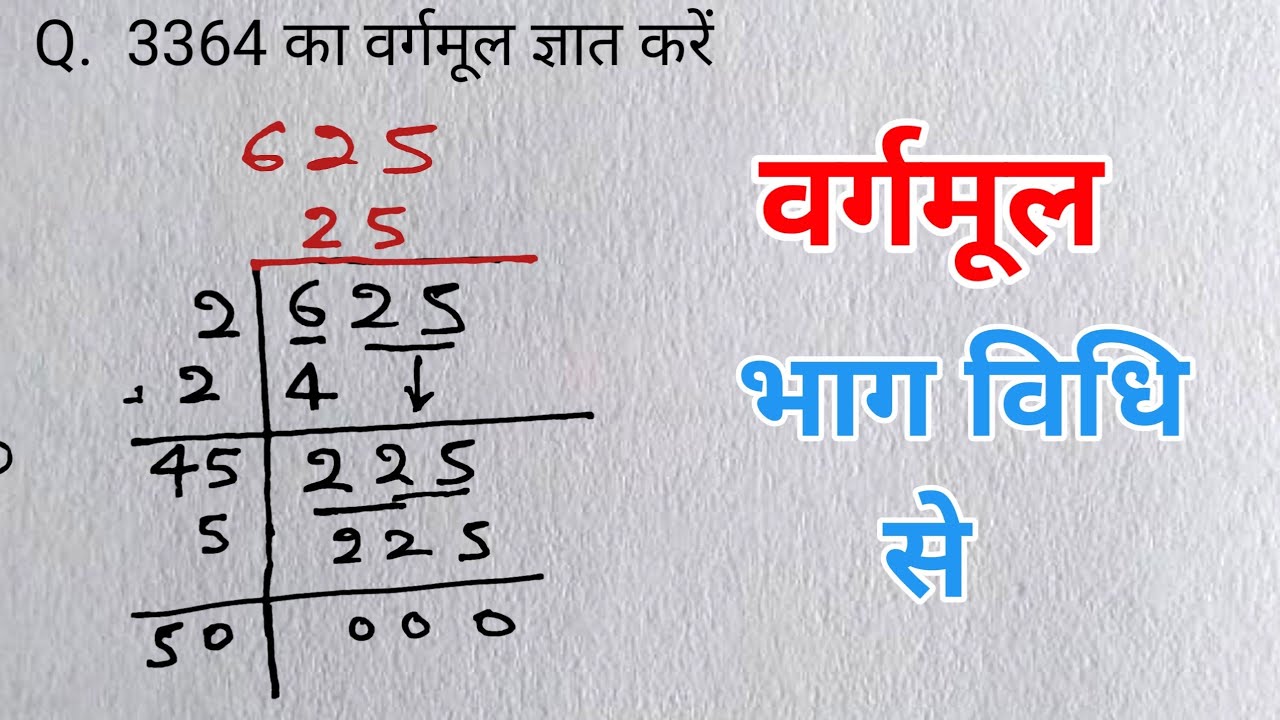 Q. 3364 का वर्गमूल ज्ञात करें
625
25
2 625
+2 4 ↓
45 225
5 225
50 000
वर्गमूल
भाग विधि
से